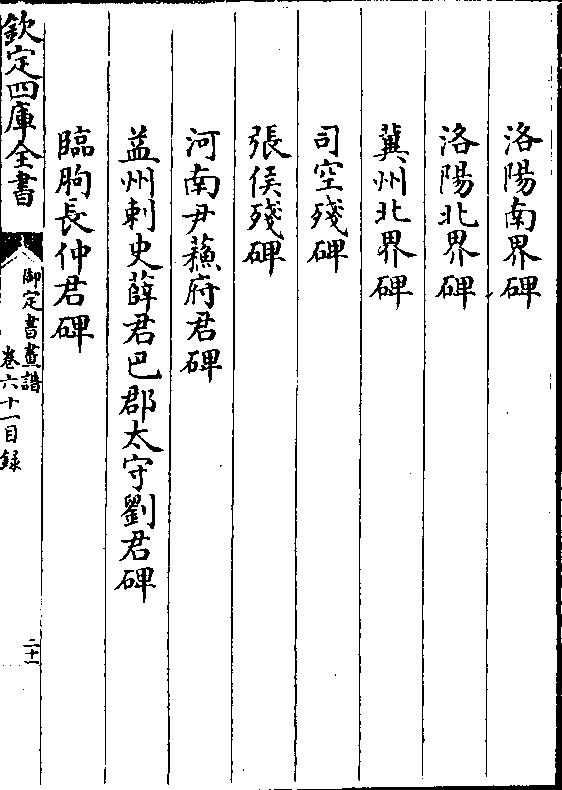 洛陽南界碑
洛陽北界碑
冀州北界碑
司空殘碑
張侯殘碑
河南尹蘓府君碑
益州刺史薛君巴郡太守劉君碑
臨朐長仲君碑
欽定四庫全書
御定書畫譜
卷六十一目録
二十一